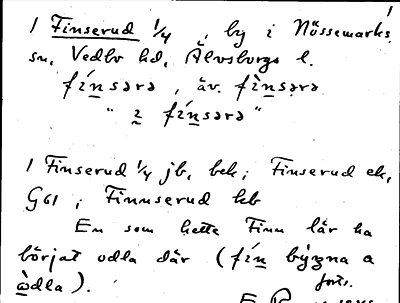 1
1 Finserud 1/4, by i Nössemarks
sn, Vedbo hd, Älvsborgs l.
fìnsərə, äv. fìnsərə
" 2 fìnsərə "
1 Finserud 1/4 jb, bek; Finserud ek,
G61; Finnserud hb
En som hette Finn lär ha
börjat odla där (fin býʒna a
ὼdla). forts.